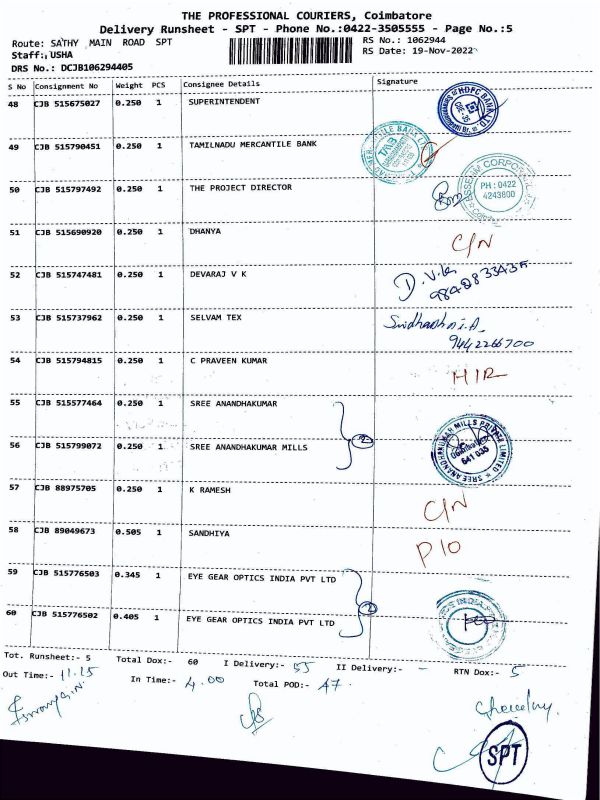 THE PROFESSIONAL COURIERS, Coimbatore
Delivery Runsheet - SPT - Phone No.:0422-3505555 - Page No.:5
Route: SATHY MAIN ROAD SPT
RS No.: 1062944
Staff: USHA
RS Date: 19-Nov-2022
DRS No.: DCJB106294405
S No Consignment No Weight PCS Consignee Details Signature
48 CJB 515675027 0.250 1 SUPERINTENDENT
HDFC BANK LTD
49 CJB 515790451 0.250 1 TAMILNADU MERCANTILE BANK
TMB
50 CJB 515797492 0.250 1 THE PROJECT DIRECTOR
PH : 0422
4243800
51 CJB 515690920 0.250 1 DHANYA C/N
52 CJB 515747481 0.250 1 DEVARAJ V K D.V.K
53 CJB 515737962 0.250 1 SELVAM TEX
9442266700
54 CJB 515794815 0.250 1 C PRAVEEN KUMAR
55 CJB 515577464 0.250 1 SREE ANANDHAKUMAR
56 CJB 515799072 0.250 1 SREE ANANDHAKUMAR MILLS 2
SREE ANANDHAKUMAR MILLS PRIVATE LIMITED
641 035
57 CJB 88975705 0.250 1 K RAMESH C/N
58 CJB 89049673 0.505 1 SANDHIYA P/O
59 CJB 515776503 0.345 1 EYE GEAR OPTICS INDIA PVT LTD
2
60 CJB 515776502 0.405 1 EYE GEAR OPTICS INDIA PVT LTD
Tot. Runsheet:- 5 Total Dox:- 60 I Delivery:- 55 II Delivery:- - RTN Dox:- 5
Out Time:- 11.15 In Time:- 4.00 Total POD:- 47
SPT